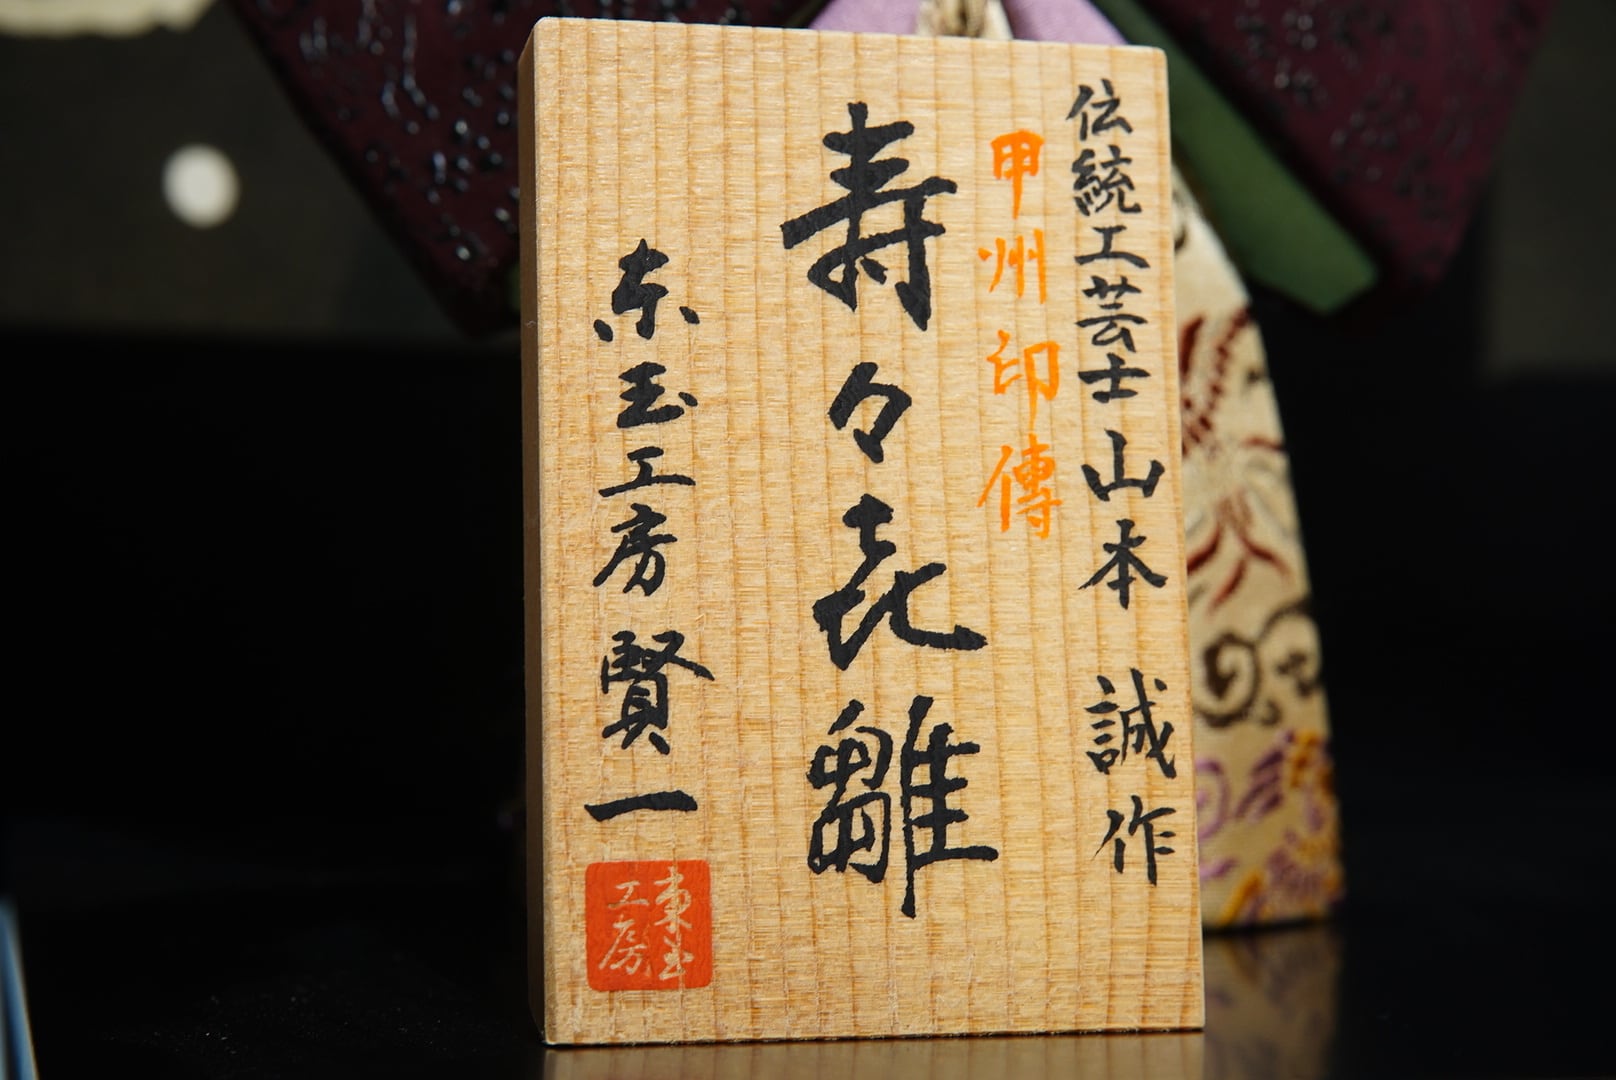 伝統工芸士山本 誠作
甲州印傳
寿々㐂雛
东玉工房 賢一
東玉
工房